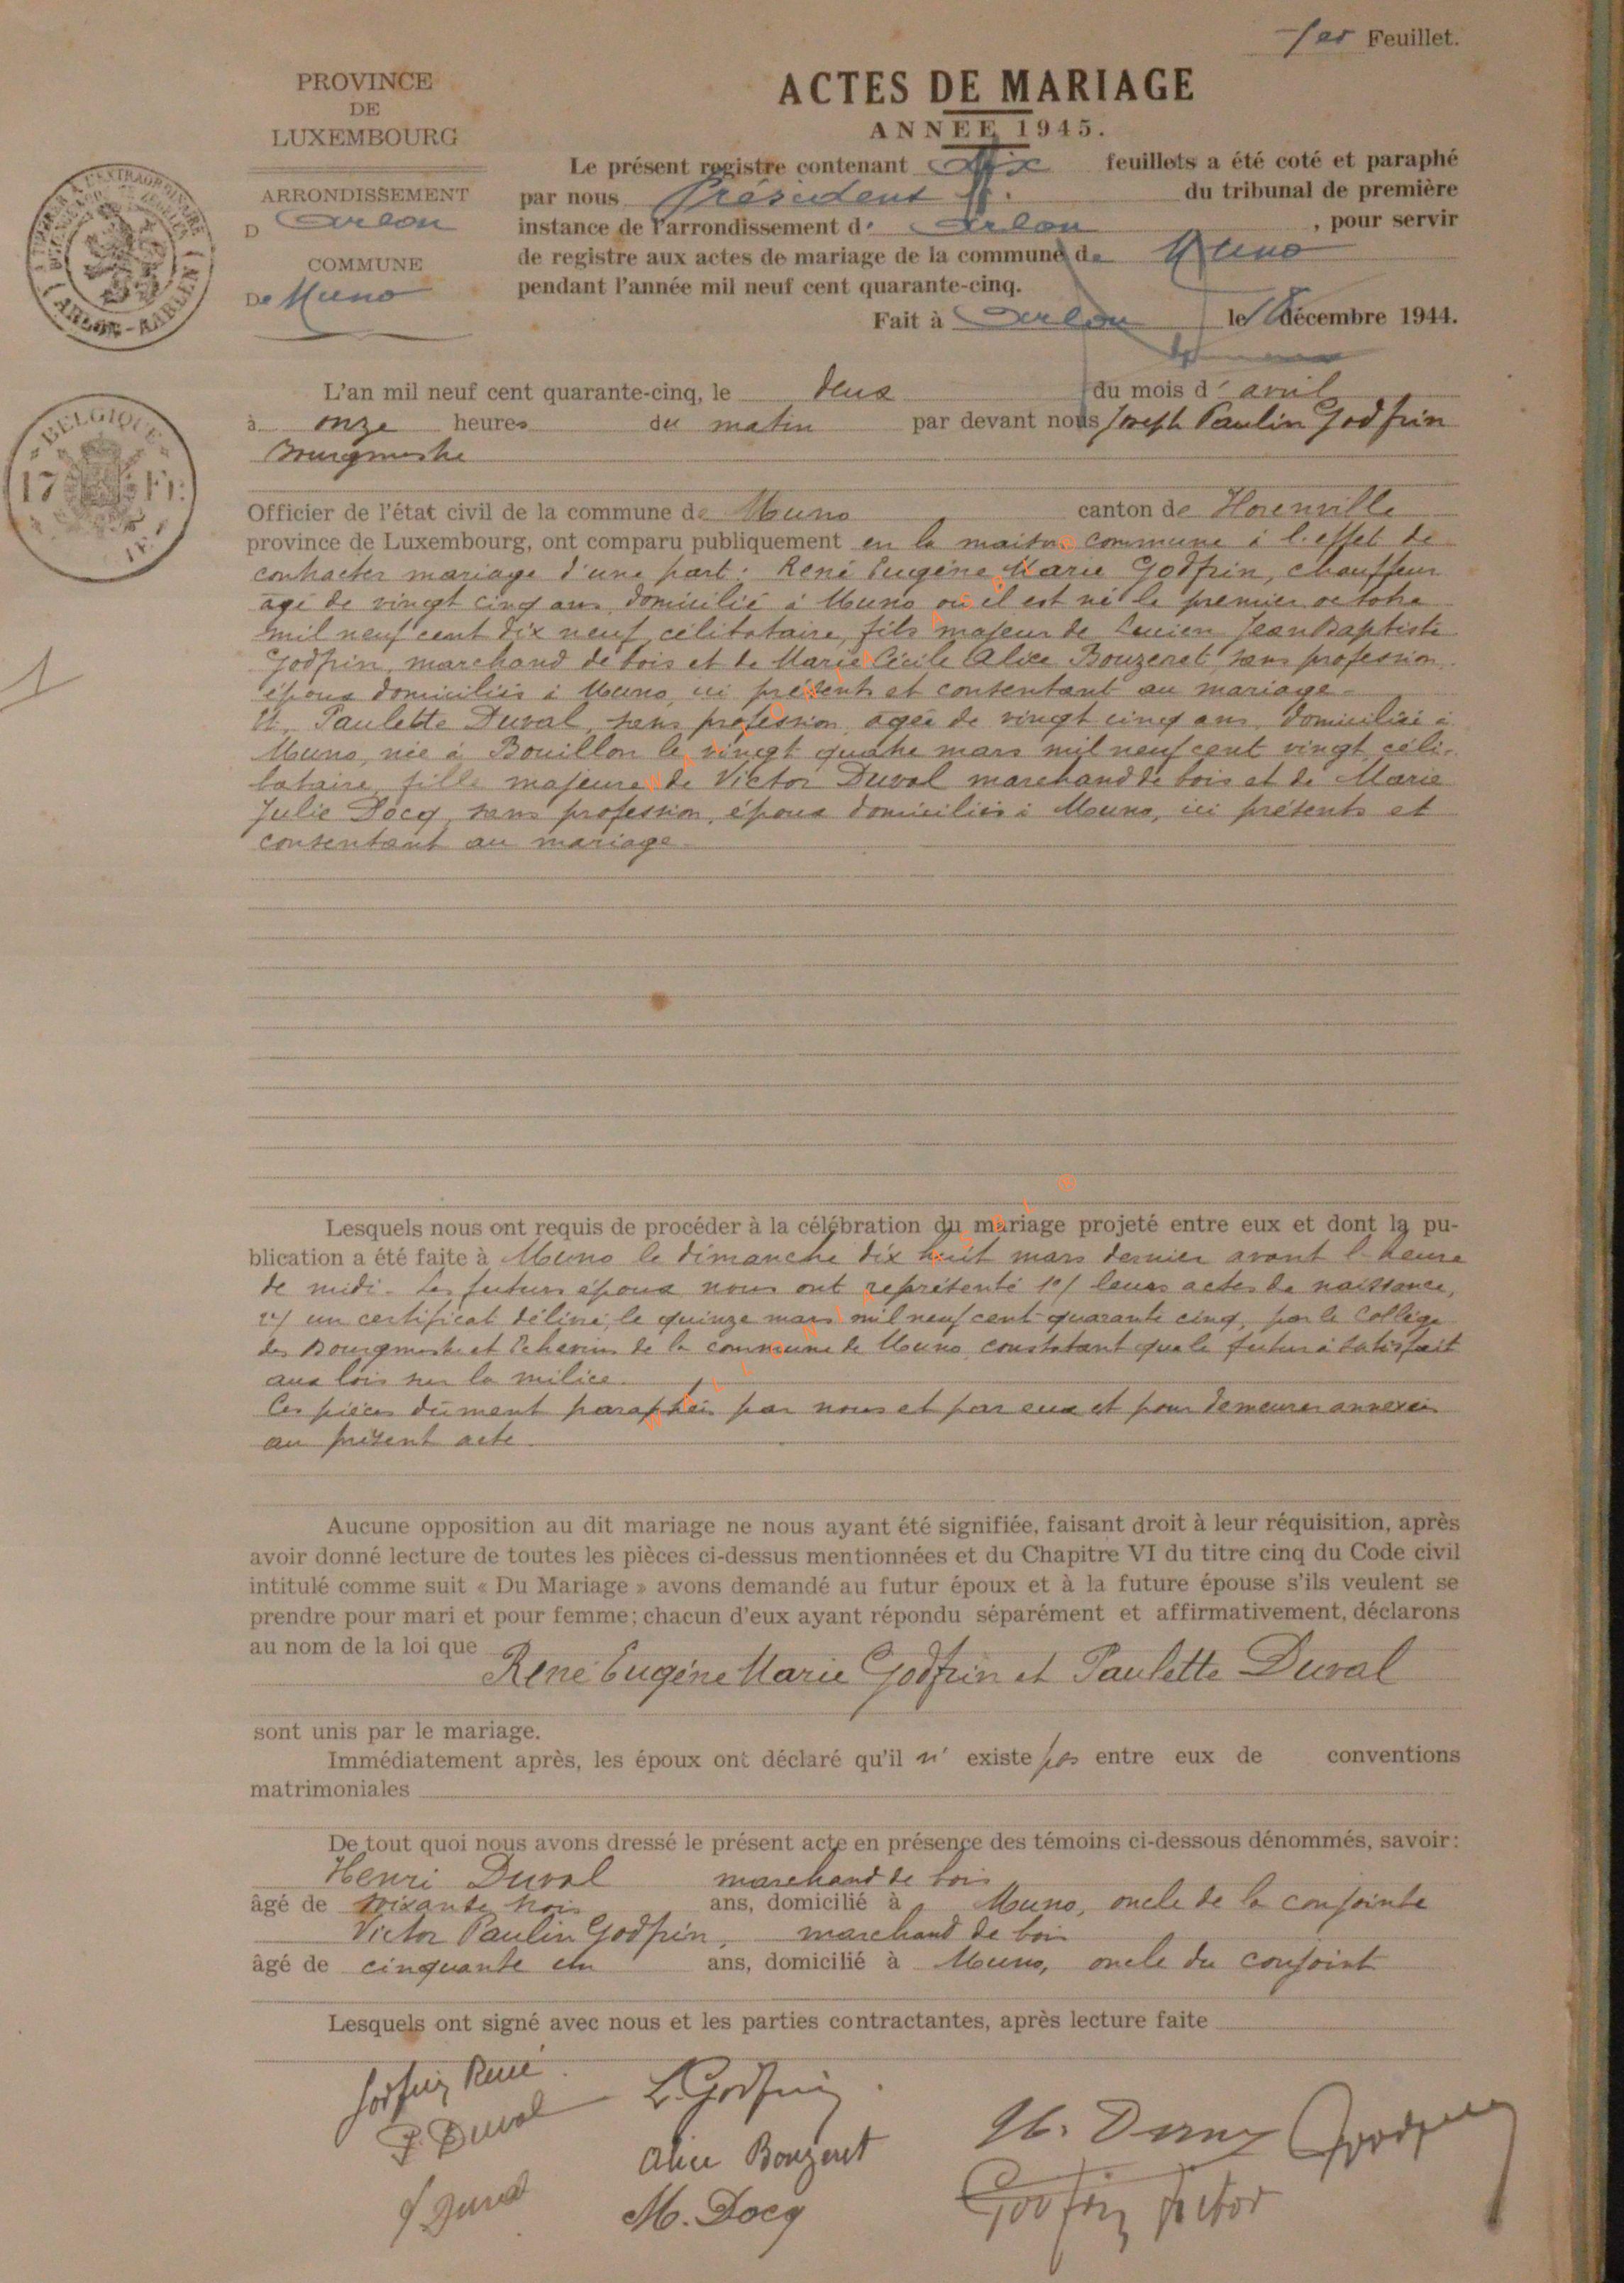 1er Feuillet.
PROVINCE
DE
LUXEMBOURG
ARRONDISSEMENT
D Arlon
COMMUNE
De Muno
ACTES DE MARIAGE
ANNÉE 1945.
Le présent registre contenant dix feuillets a été coté et paraphé
par nous Président du tribunal de première
instance de l'arrondissement d' Arlon , pour servir
de registre aux actes de mariage de la commune de Muno
pendant l'année mil neuf cent quarante-cinq.
Fait à Arlon le décembre 1944.
BELGIQUE
17 Fr.
ARLON-AARLEN
L'an mil neuf cent quarante-cinq, le deux du mois d' avril
à onze heures du matin par devant nous Joseph Paulin Godfrin
Bourgmestre
Officier de l'état civil de la commune de Muno canton de Florenville
province de Luxembourg, ont comparu publiquement en la maison commune à l'effet de
contracter mariage d'une part: René Eugène Marie Godfrin, chauffeur
agé de vingt cinq ans domicilié à Muno où il est né le premier octobre
mil neuf cent dix neuf, célibataire, fils majeur de Lucien Jean Baptiste
Godfrin, marchand de bois et de Marie Cécile Alice Bouzeret, sans profession
époux domiciliés à Muno, ici présents et consentant au mariage
Et Paulette Duval, sans profession, agée de vingt cinq ans, domiciliée à
Muno, née à Bouillon le vingt quatre mars mil neuf cent vingt, céli-
bataire, fille majeure de Victor Duval marchand de bois et de Marie
Julie Docq, sans profession, époux domiciliés à Muno, ici présents et
consentant au mariage
1
Lesquels nous ont requis de procéder à la célébration du mariage projeté entre eux et dont la pu-
blication a été faite à Muno le dimanche dix huit mars dernier avant l'heure
de midi. Les futurs époux nous ont représenté 1°/ leurs actes de naissance,
2°/ un certificat délivré, le quinze mars mil neuf cent quarante cinq, par le Collège
des Bourgmestre et Echevins de la commune de Muno, constatant que le futur a satisfait
aux lois sur la milice.
Ces pièces dûment paraphées par nous et par eux et pour demeurer annexées
au présent acte.
Aucune opposition au dit mariage ne nous ayant été signifiée, faisant droit à leur réquisition, après
avoir donné lecture de toutes les pièces ci-dessus mentionnées et du Chapitre VI du titre cinq du Code civil
intitulé comme suit « Du Mariage » avons demandé au futur époux et à la future épouse s'ils veulent se
prendre pour mari et pour femme; chacun d'eux ayant répondu séparément et affirmativement, déclarons
au nom de la loi que
René Eugène Marie Godfrin et Paulette Duval
sont unis par le mariage.
Immédiatement après, les époux ont déclaré qu'il n' existe pas entre eux de conventions
matrimoniales
De tout quoi nous avons dressé le présent acte en présence des témoins ci-dessous dénommés, savoir:
Henri Duval marchand de bois
âgé de soixante trois ans, domicilié à Muno, oncle de la conjointe
Victor Paulin Godfrin, marchand de bois
âgé de cinquante un ans, domicilié à Muno, oncle du conjoint
Lesquels ont signé avec nous et les parties contractantes, après lecture faite
Godfrin René
L. Godfrin
P. Duval
Alice Bouzeret
H. Duval Godfrin
Duval
M. Docq
Godfrin Victor